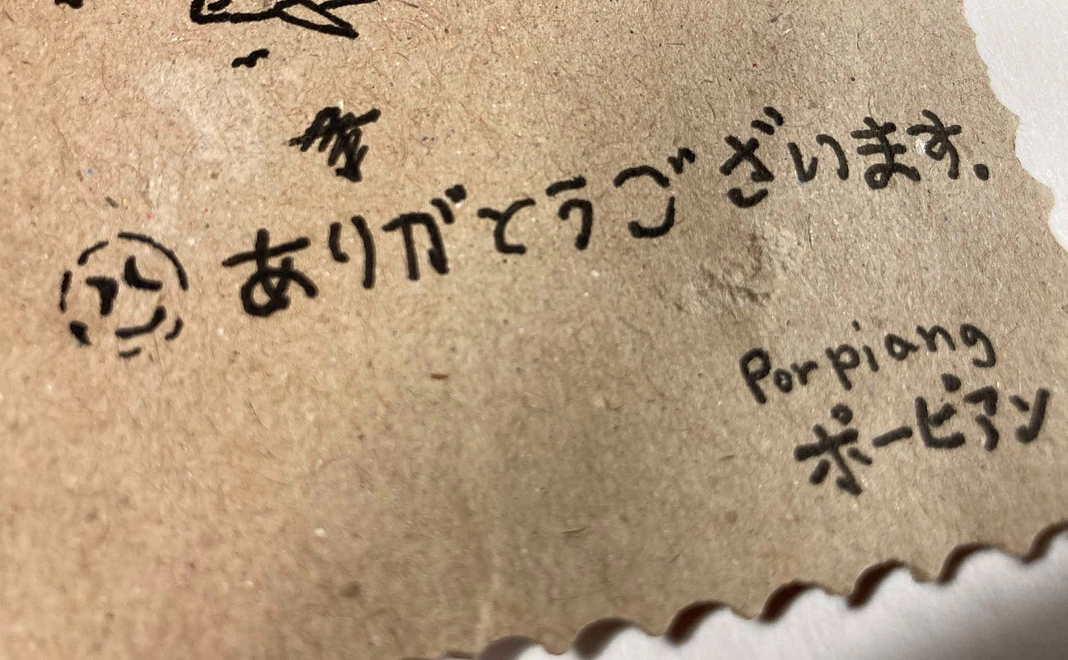 ありがとうございます。
Porpiang
ポーピアン